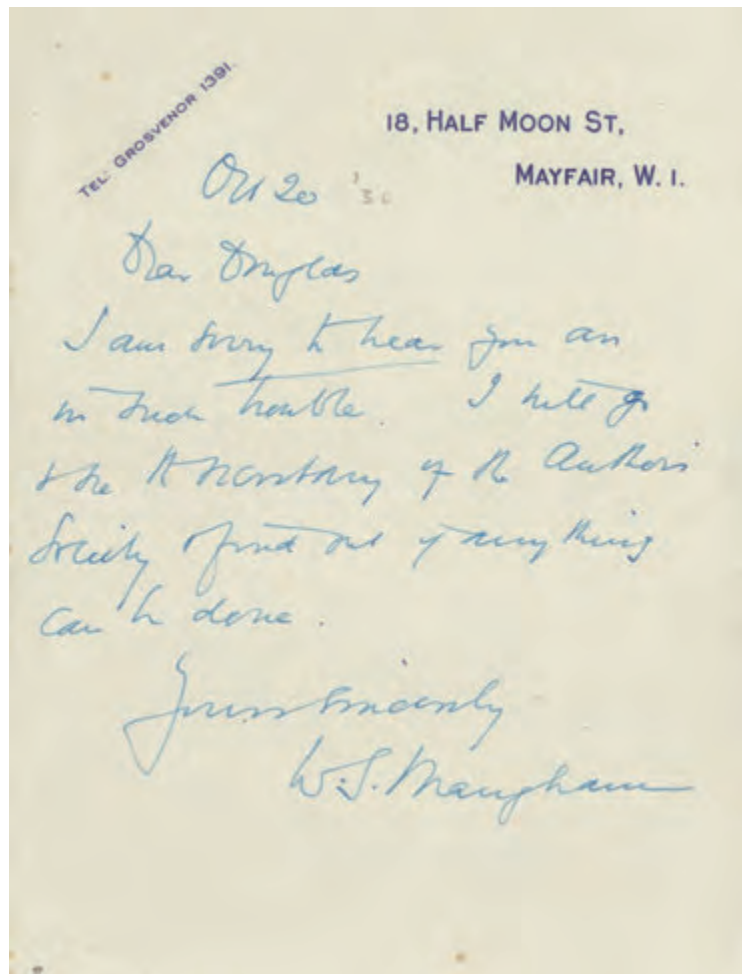 TEL: GROSVENOR 1391.
18, HALF MOON ST,
MAYFAIR, W. 1.
Oct 20 '30
Dear Douglas
I am sorry to hear you are
in such trouble. I will go
& see the secretary of the Authors
Society & find out if anything
can be done.
Yours sincerely
W. S. Maugham